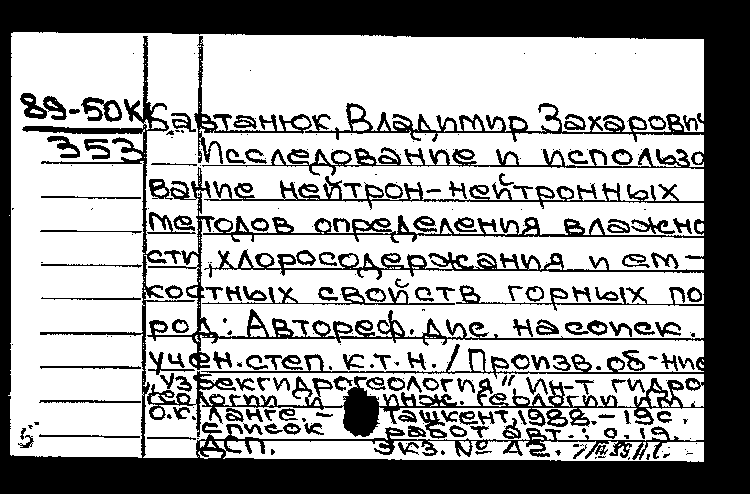 89-50К
353
Бавтанюк, Владимир Захарович
Исследование и использо
вание нейтрон-нейтронных
методов определения влажно
сти, хлоросодержания и ем-
костных свойств горных по
род: Автореф. дис. на соиск.
учен. степ. к.т.н. / Произв. об-ние
"Узбекгидрогеология" Ин-т гидро
геологии и инж. геологии им.
О.К. Ланге. - Ташкент, 1988. - 19 с.
Список работ авт.: с. 19.
ДСП. Экз. № 42.
5